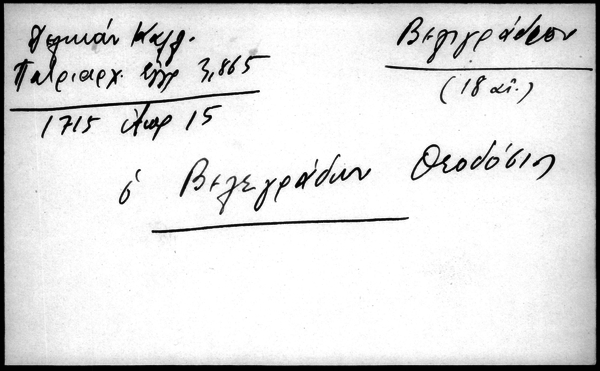 Δελικάν Καλλ.
Πατριαρχ. έγγρ 3,865
1715 Απρ 15
Βελεγράδων
(18 αἰ.)
ὁ Βελεγράδων Θεοδόσιος